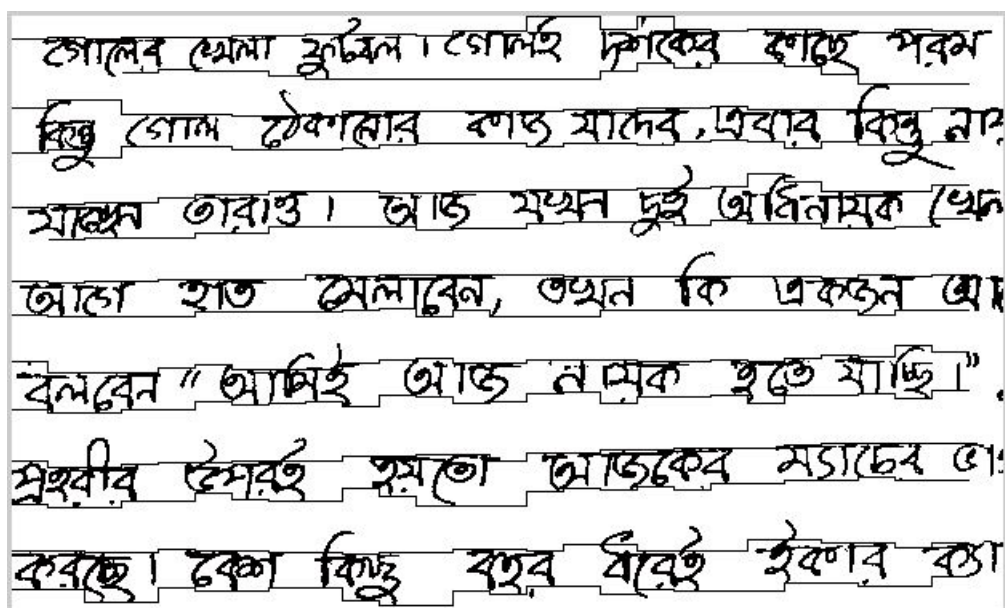 গোলের খেলা ফুটবল। গোলই দর্শকের কাছে পরম
কিন্তু গোল ঠেকানোর কাজ যাদের, এবার কিন্তু
যাচ্ছেন তারাও। আজ যখন দুই অধিনায়ক
আগে হাত মেলাবেন, তখন কি একজন
বলবেন "আমিই আজ নায়ক হতে যাচ্ছি।"
প্রহরীর উপরই হয়তো আজকের ম্যাচের
করছে। বেশ কিছু বছর ধরেই ইকার